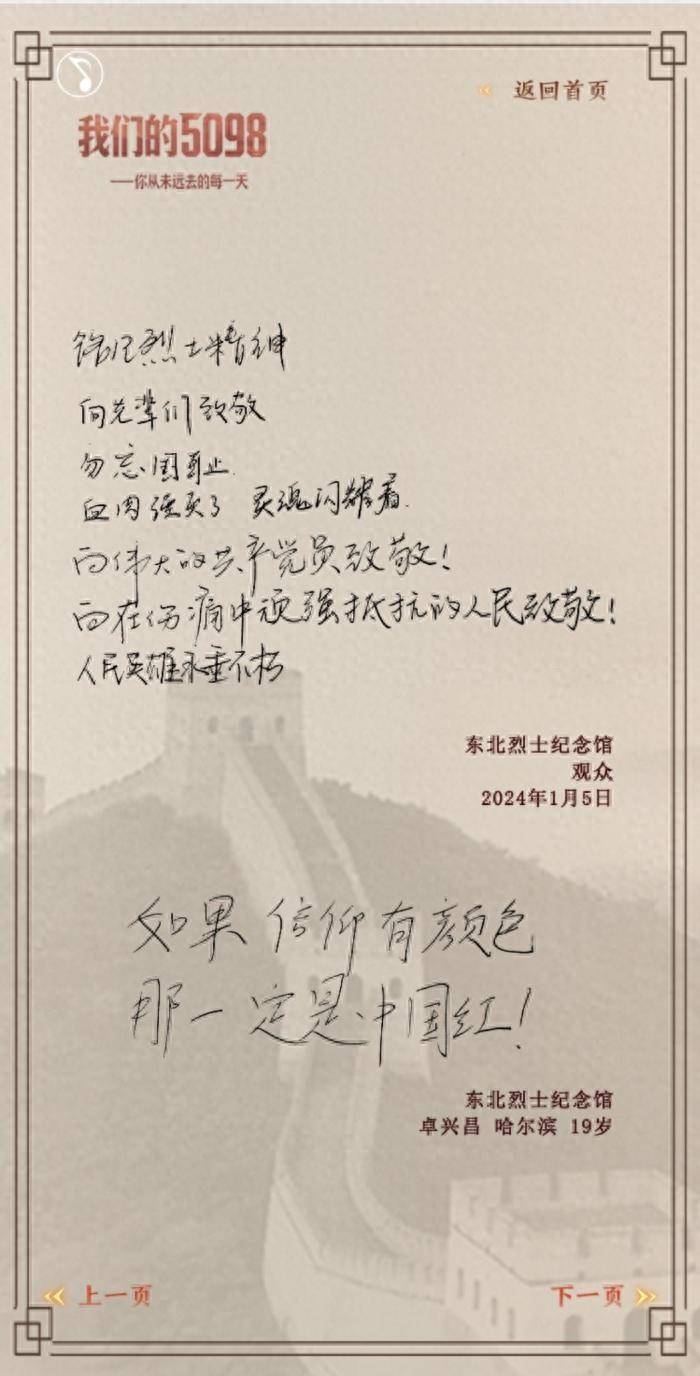 返回首页
我们的5098
——你从未远去的每一天
铭记烈士精神
向先辈们致敬
勿忘国耻
血肉强买了 灵魂闪耀着
向伟大的共产党员致敬！
向在伤痛中顽强抵抗的人民致敬！
人民英雄永垂不朽
东北烈士纪念馆
观众
2024年1月5日
如果信仰有颜色
那一定是中国红！
东北烈士纪念馆
卓兴昌 哈尔滨 19岁
上一页
下一页